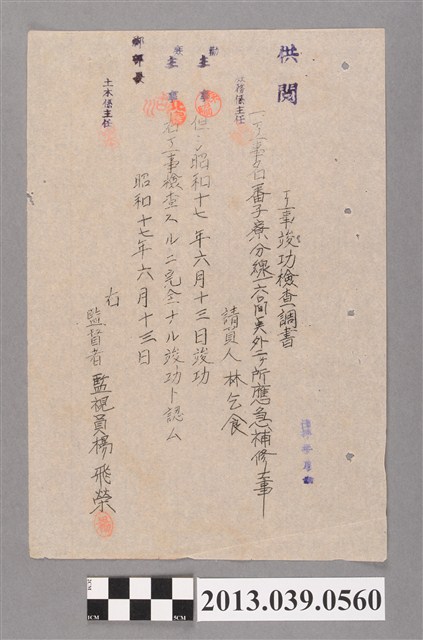 供閲
工事竣功検査調書
一、工事名 番子寮分線六〇間美外二ヶ所應急補修工事
請負人 林乞食
但シ昭和十七年六月十三日竣功
右工事検査スルニ完全ナル竣功ト認ム
昭和十七年六月十三日
右
監督者 監視員 楊飛榮
主事
主事
土木係主任
CM
5CM
2013.039.0560